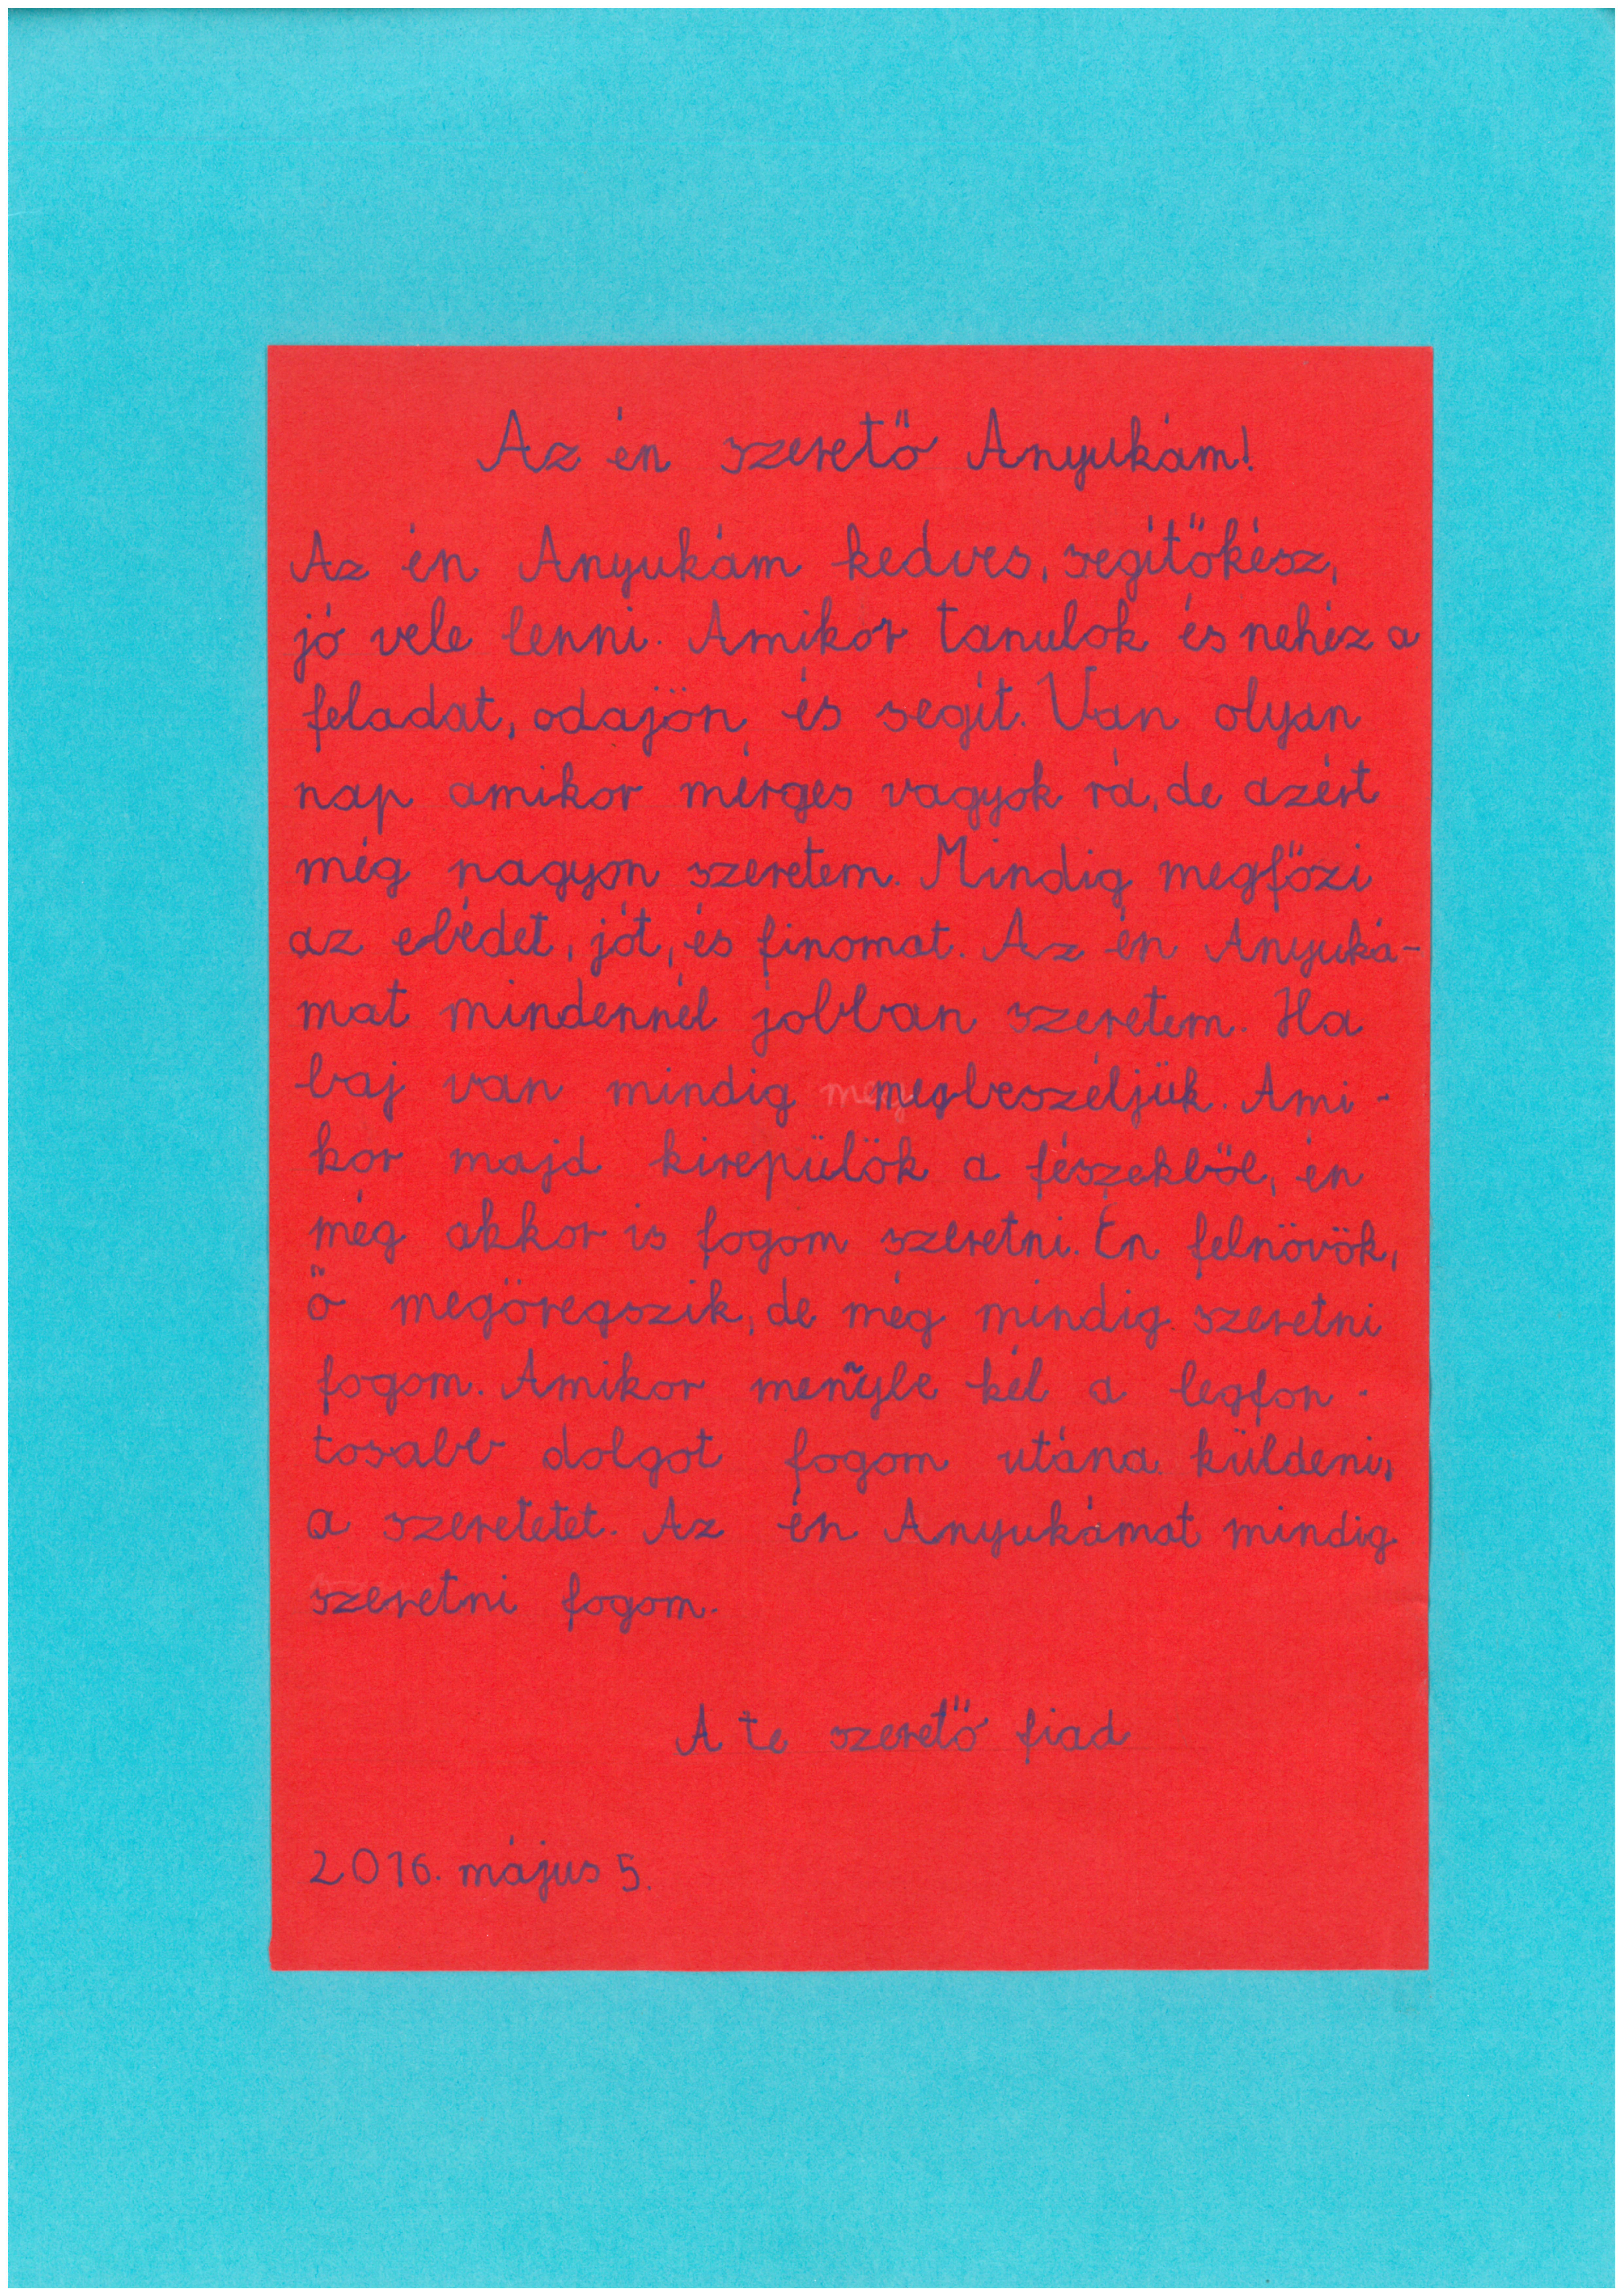 Az én szerető Anyukám!
Az én Anyukám kedves, segítőkész,
jó vele lenni. Amikor tanulok és nehéz a
feladat, odajön és segít. Van olyan
nap amikor mérges vagyok rá, de azért
még nagyon szeretem. Mindig megfőzi
az ebédet, jót, és finomat. Az én Anyuká-
mat mindennél jobban szeretem. Ha
baj van mindig megbeszéljük. Ami-
kor majd kirepülök a fészekből, én
még akkor is fogom szeretni. Én felnövök,
ő megöregszik, de még mindig szeretni
fogom. Amikor menybe kél a legfon-
tosabb dolgot fogom utána küldeni,
a szeretetet. Az én Anyukámat mindig
szeretni fogom.
A te szerető fiad
2016. május 5.